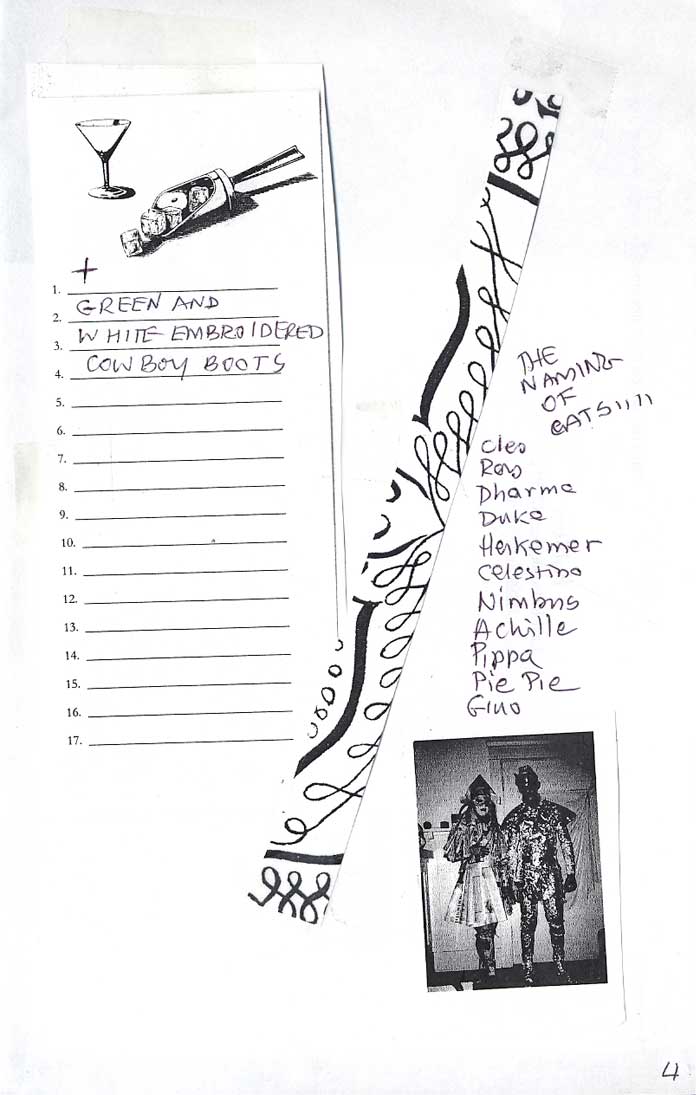 +
1.
GREEN AND
2.
WHITE EMBROIDERED
3.
COWBOY BOOTS
4.
5.
6.
7.
8.
9.
10.
11.
12.
13.
14.
15.
16.
17.
THE
NAMING
OF
CATS!!!!
Cleo
Dharma
Duke
Herkemer
Celestino
Nimbus
Achille
Pippa
Pie Pie
Gino
4